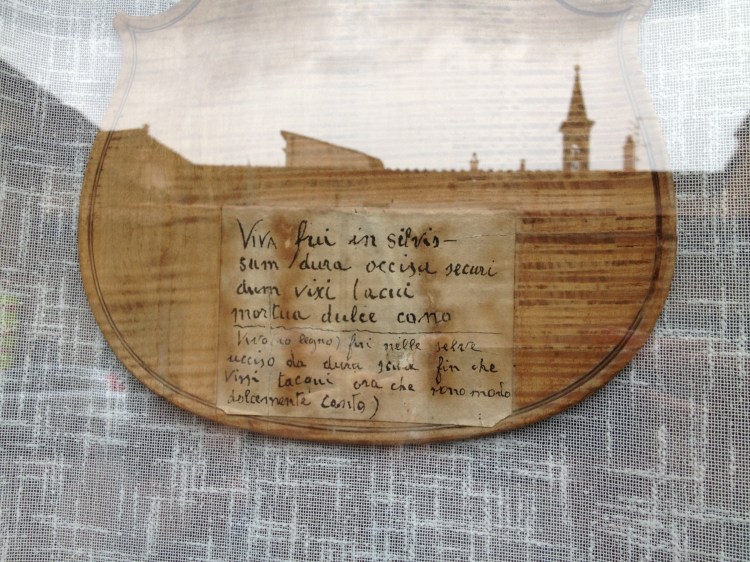 Viva fui in silvis—
sum dura occisa securi
dum vixi tacui
mortua dulce cano
Vivo (io legno) fui nelle selve
ucciso da dura scure fin che
vissi tacqui ora che sono morto
dolcemente canto)